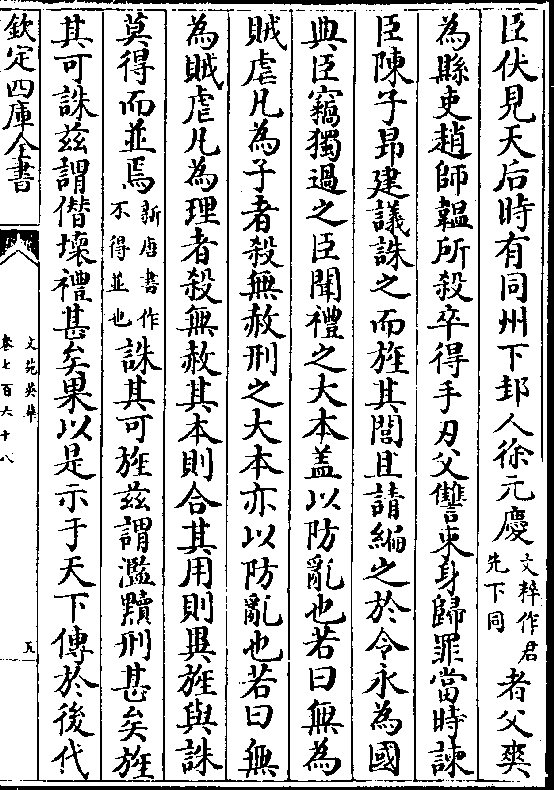 臣伏見天后時有同州下邽人徐元慶文粹作君先下同者父爽
為縣吏趙師韞所殺卒得手刃父讐束身歸罪當時諫
臣陳子昻建議誅之而旌其閭且請編之於令永為國
典臣竊獨過之臣聞禮之大本盖以防亂也若曰無為
賊虐凡為子者殺無赦刑之大本亦以防亂也若曰無
為賊虐凡為理者殺無赦其本則合其用則異旌與誅
莫得而並焉新唐書作不得並也誅其可旌兹謂濫黷刑甚矣旌
其可誅兹謂僣壊禮甚矣果以是示于天下傳於後代
欽定四庫全書
文苑英華
卷七百六十八
五